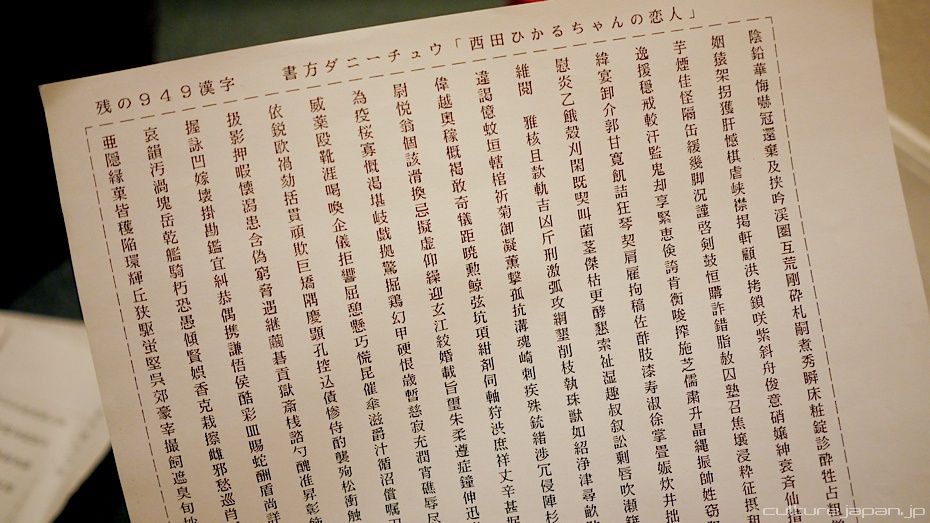 残の９４９漢字　書方ダニーチュウ「西田ひかるちゃんの恋人」
陰鉛華侮嚇冠還棄及挟吟渓圏互荒剛砕札嗣煮秀瞬床粧錠診酔牲占
姻猿架拐獲肝憾棋虐峡襟掲軒顧洪拷鎖咲紫斜舟俊意硝嬢紳衰斉仙
芋煙佳怪隔缶緩幾脚況謹啓剣鼓恒購詐錯脂赦囚塾召焦壌浸粋征摂
逸援穏戒較汗監鬼却享緊恵倹誇肯衡唆搾施芝儒粛升晶縄振帥姓窃
緯宴卸介郭甘寛飢詰狂琴契肩雇拘稿佐酢肢漆寿淑徐掌畳娠炊井拙
慰炎乙餓殻刈閑既喫叫菌茎傑枯更酵懇索祉湿趣叔叙訟剰唇吹瀬
維閲　雅核且款軌吉凶斤刑激弧攻綱墾削枝執珠獣如紹浄津尋畝
違謁憶蚊垣轄棺祈菊御凝薫撃孤抗溝魂崎刺疾殊銃緒渉冗侵陣杉
偉越奥稼概褐敢奇犠距暁勲鯨弦坑項紺剤伺軸狩渋庶祥丈辛甚据
尉悦翁個該滑換忌擬虚仰繰迎玄江絞婚載旨璽朱柔遵症鐘伸迅
為疫桜寡慨渇堪岐戯拠驚掘鶏幻甲硬恨歳暫慈寂充潤宵礁辱尽
威薬殴靴涯喝喚企儀拒響屈憩懸巧慌昆催傘滋爵汁循沼償嘱
依鋭欧禍劾括貫頑欺巨矯隅慶顕孔控込債惨侍酌襲殉松衝触
扱影押暇懐潟患含偽窮脅遇継繭碁貢獄斎桟諮勺醜准昇彰飾
握詠凹嫁壊掛勘鑑宜糾恭偶携謙悟侯酷彩皿賜蛇酬盾尚詳
哀韻汚渦塊岳乾艦騎朽恐愚傾賢娯香克栽擦雌邪愁巡肖
亜隠縁菓皆穫陥環輝丘狭駆蛍堅呉郊豪宰撮飼遮臭旬抄
culturejapan.jp